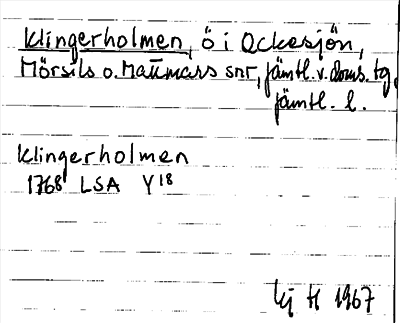 Klingerholmen, ö i Ockesjön,
Mörsils o. Mattmars snr, Jämtl. v. doms. tg,
Jämtl. l.
Klingerholmen
1768 LSA Y18
H 1967